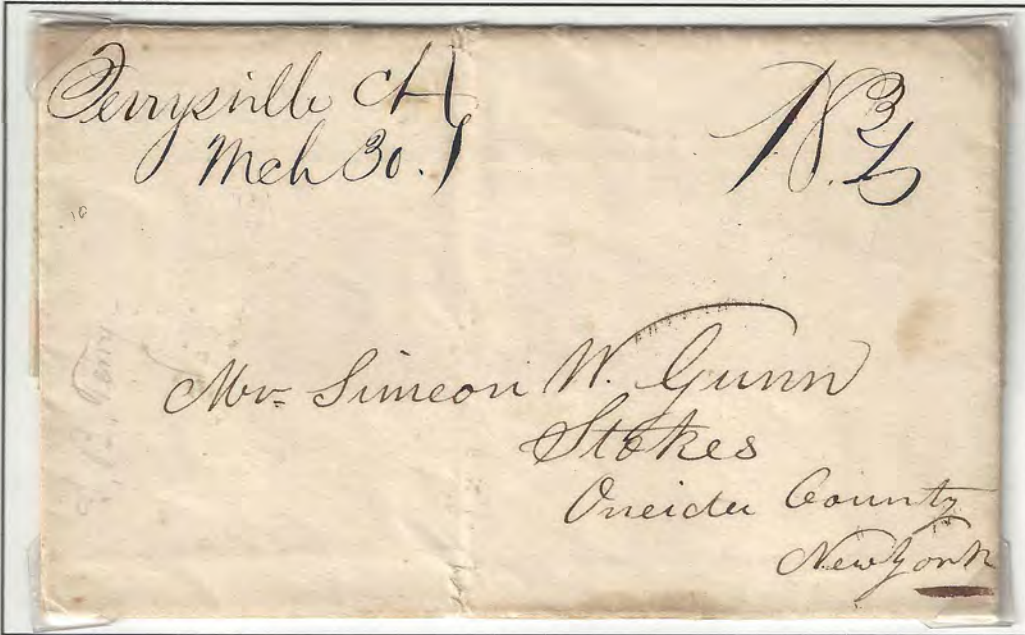 Terrysville Ct
Mch 30.
18 3/4
10
Mr. Simeon W. Gunn
Stokes
Oneida County
New York